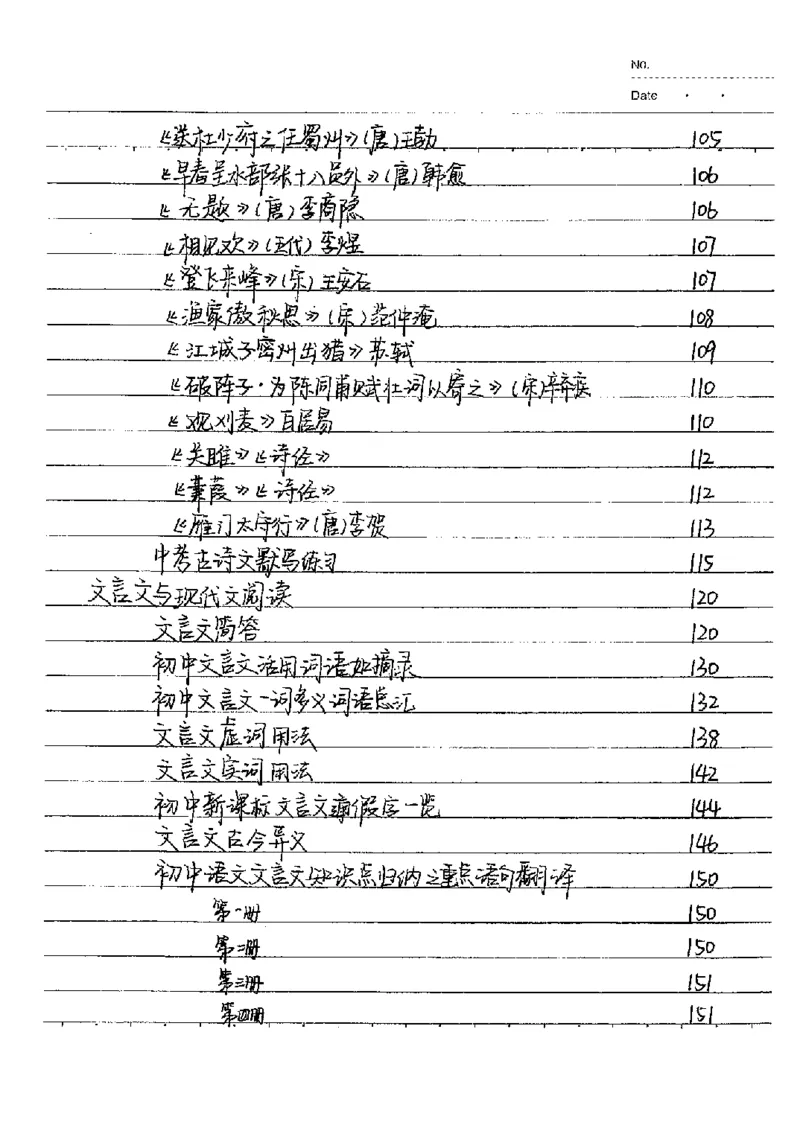 No.
Date
《送杜少府之任蜀州》(唐)王勃 105
《早春呈水部张十八员外》(唐)韩愈 106
《无题》(唐)李商隐 106
《相见欢》(五代)李煜 107
《登飞来峰》(宋)王安石 107
《渔家傲秋思》(宋)范仲淹 108
《江城子密州出猎》苏轼 109
《破阵子·为陈同甫赋壮词以寄之》(宋)辛弃疾 110
《观刈麦》白居易 110
《关雎》《诗经》 112
《蒹葭》《诗经》 112
《雁门太守行》(唐)李贺 113
中考古诗文默写练习 115
文言文与现代文阅读 120
文言文简答 120
初中文言文活用词语如摘录 130
初中文言文一词多义词语总汇 132
文言文虚词用法 138
文言文实词用法 142
初中新课标文言文通假字一览 144
文言文古今异义 146
初中语文文言文知识点归纳之重点语句翻译 150
第一册 150
第二册 150
第三册 151
第四册 151